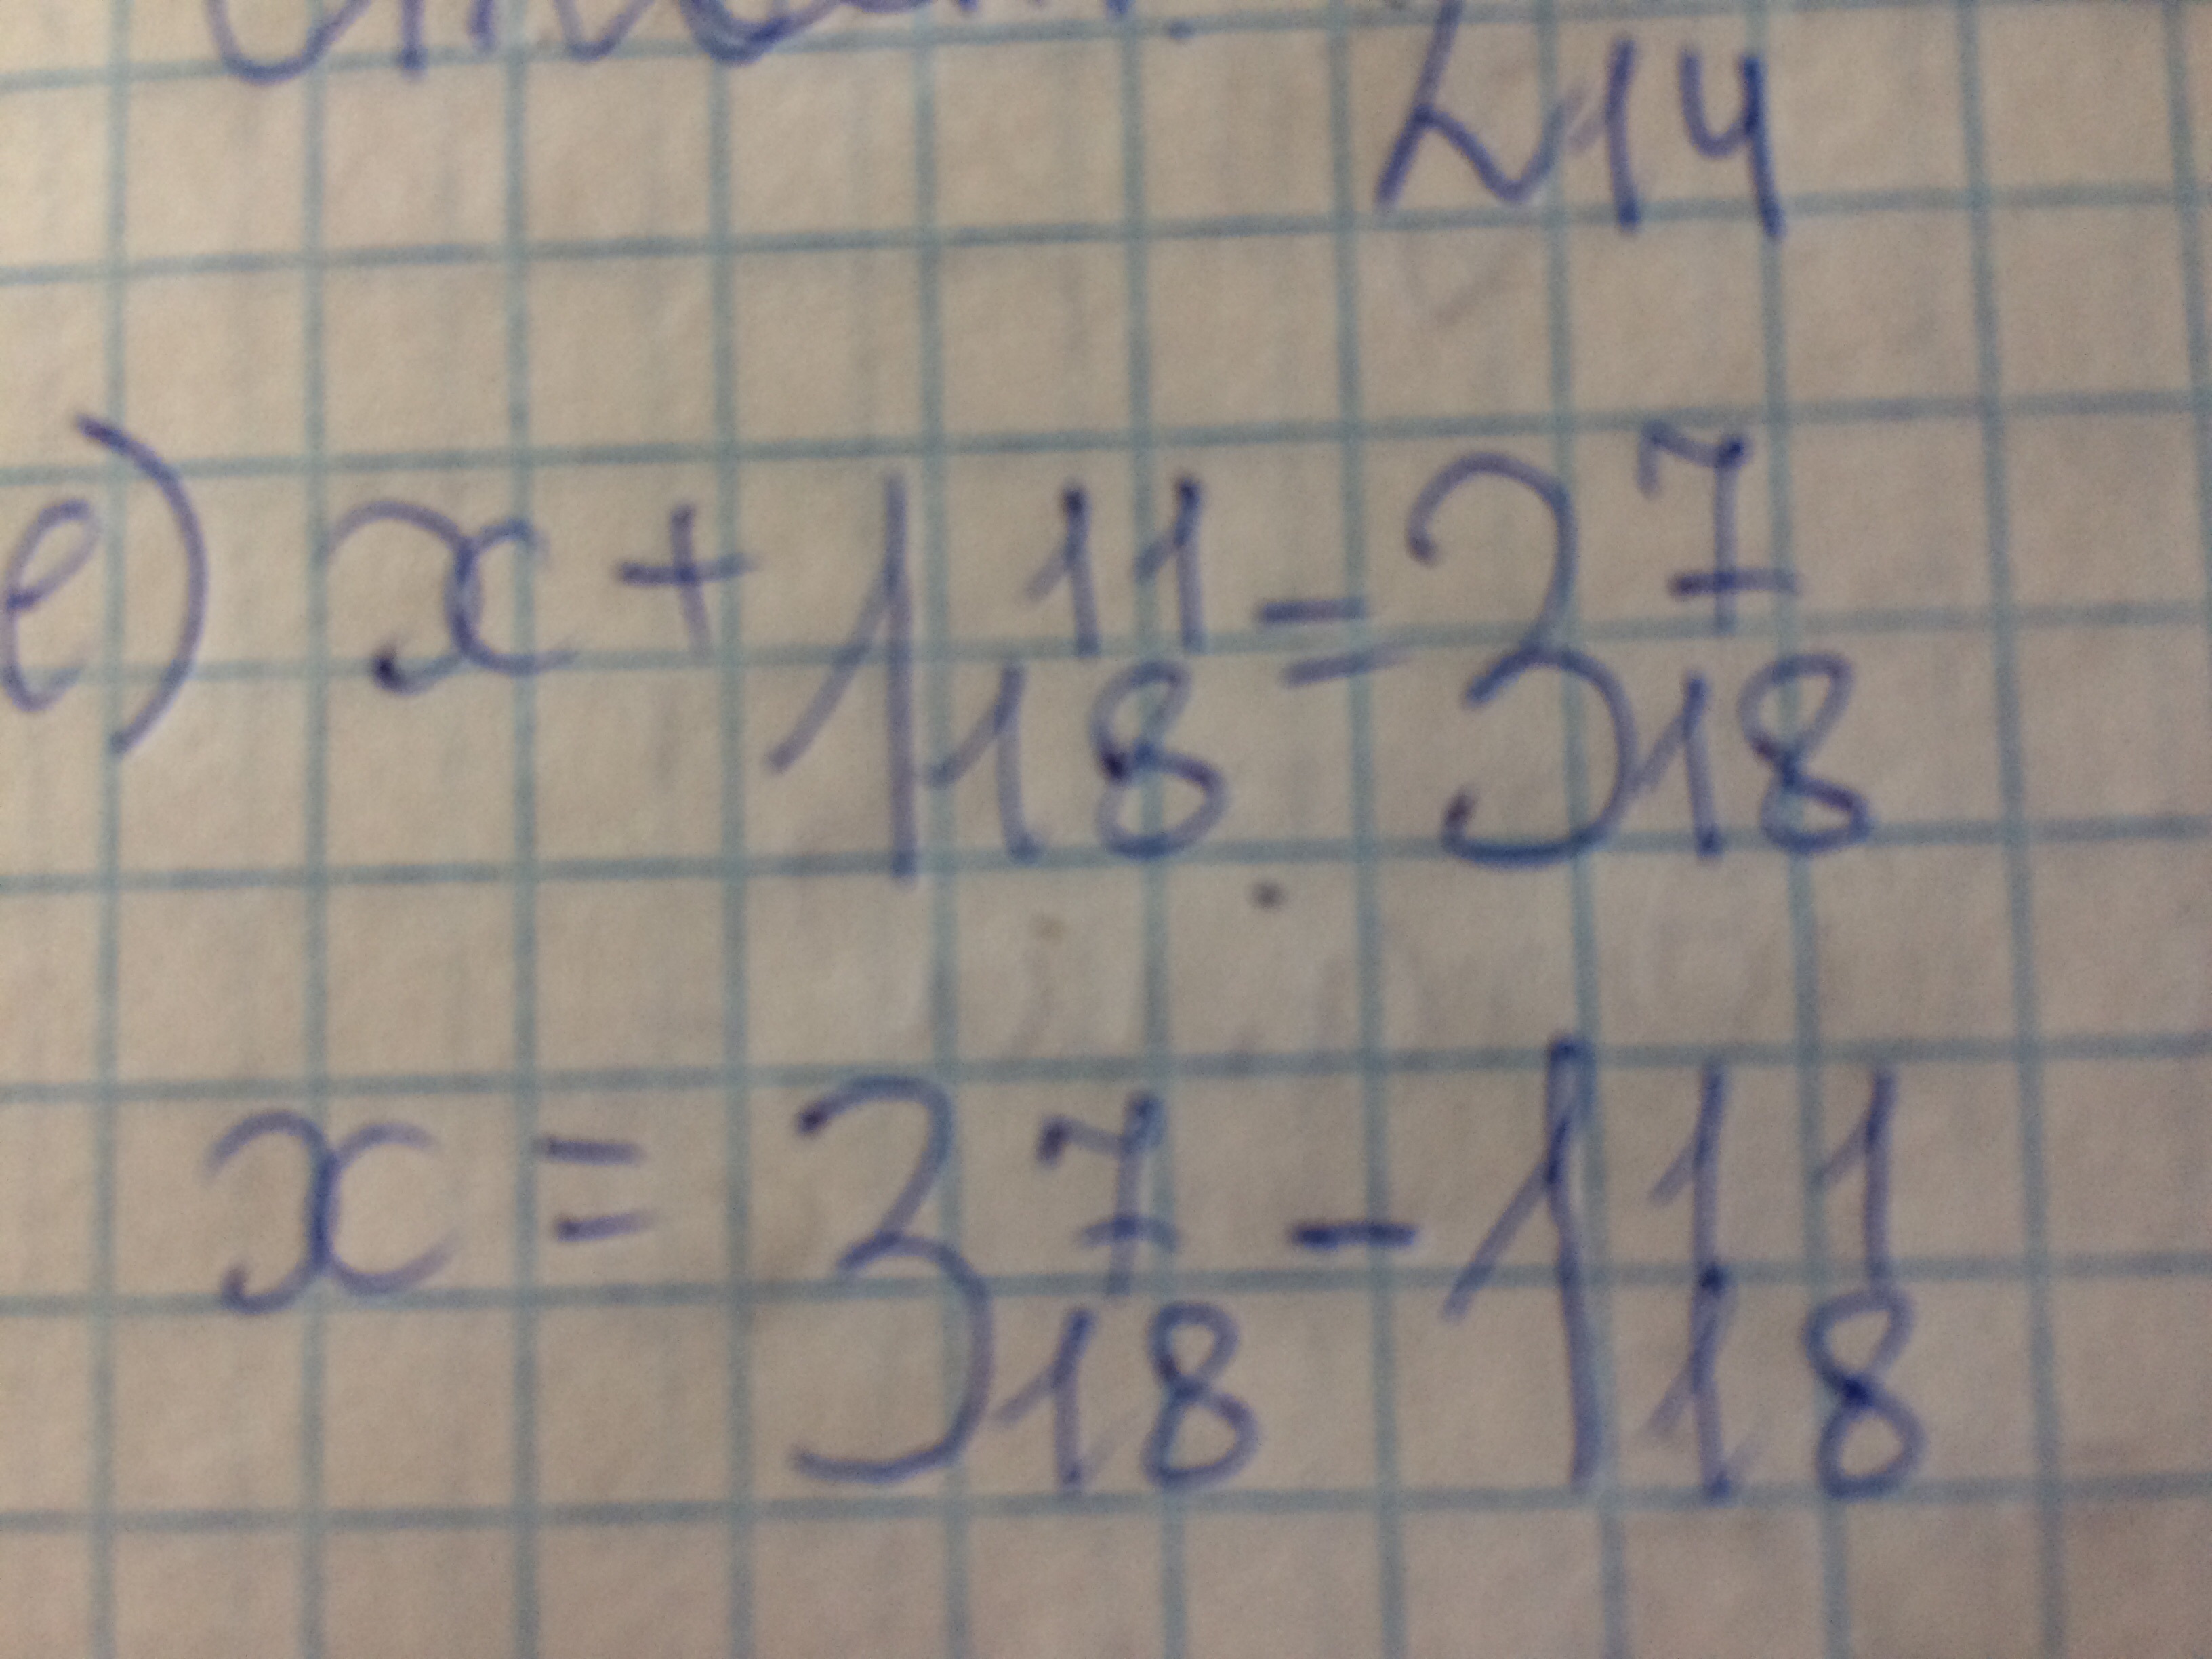 214
е) x + 1 11/18 = 3 7/18
x = 3 7/18 - 1 11/18